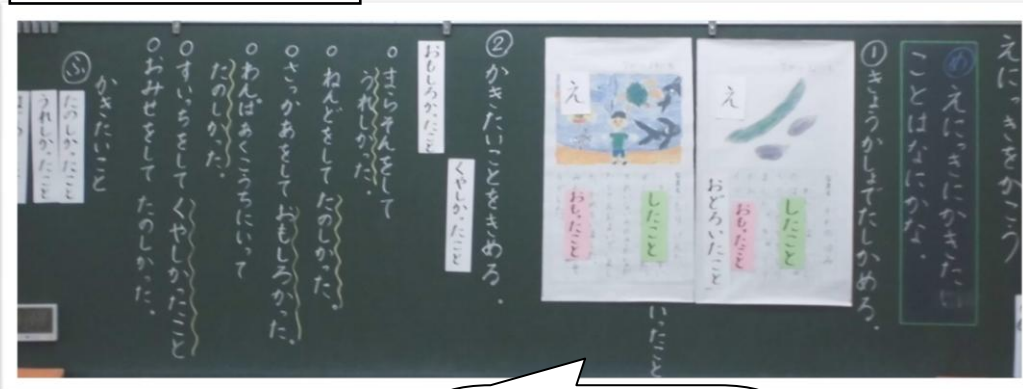 えにっきをかこう
め えにっきにかきたい
ことはなにかな。
①きょうかしょでたしかめる。
え
したこと
おもったこと
おどろいたこと
え
したこと
おもったこと
いったこと
②かきたいことをきめる。
くやしかったこと
おもしろかったこと
○まらそんをして
うれしかった。
○ねんどをして たのしかった。
○さっかあをして おもしろかった。
○わんぱあくこうちにいって
たのしかった。
○すいっちをして くやしかったこと
○おみせをして たのしかった。
かきたいこと
ふ
たのしかったこと
うれしかったこと